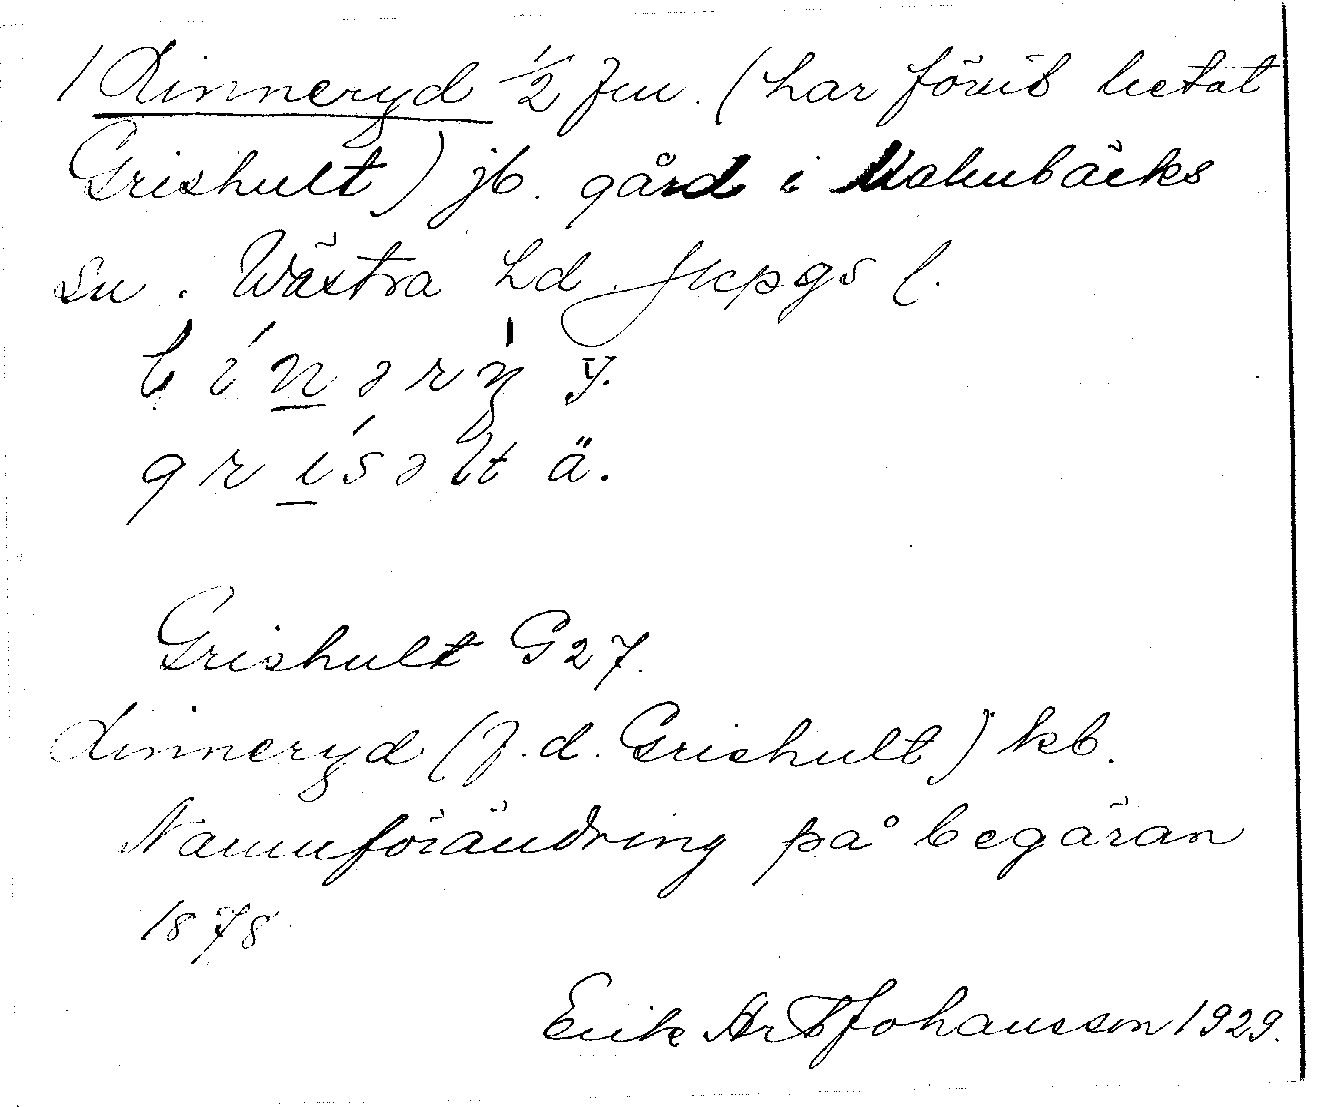 1 Linneryd ½ fm. (har förut hetat
Grishult) jb. gård i Malmbäcks
sn. Västra hd Jkpgs l.
línərẏ y.
grísəlt ä.
Grishult G 27.
Linneryd (f.d. Grishult) kb.
Namnförändring på begäran
1878
Erik Johansson 1929.